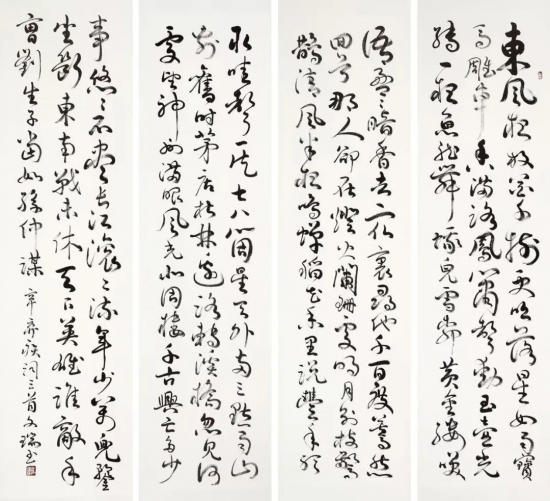 東風夜放花千樹更吹落星如雨寶
馬雕車香滿路鳳簫聲動玉壺光
轉一夜魚龍舞蛾兒雪柳黃金縷笑
語盈盈暗香去眾裏尋他千百度驀然
回首那人卻在燈火闌珊處明月別枝驚
鵲清風半夜鳴蟬稻花香里說豐年聽
取蛙聲一片七八個星天外兩三點雨山
前舊時茅店社林邊路轉溪橋忽見何
處望神州滿眼風光北固樓千古興亡多少
事悠悠不盡長江滾滾流年少萬兜鍪
坐斷東南戰未休天下英雄誰敵手
曹劉生子當如孫仲謀 辛棄疾詞三首文瑞書